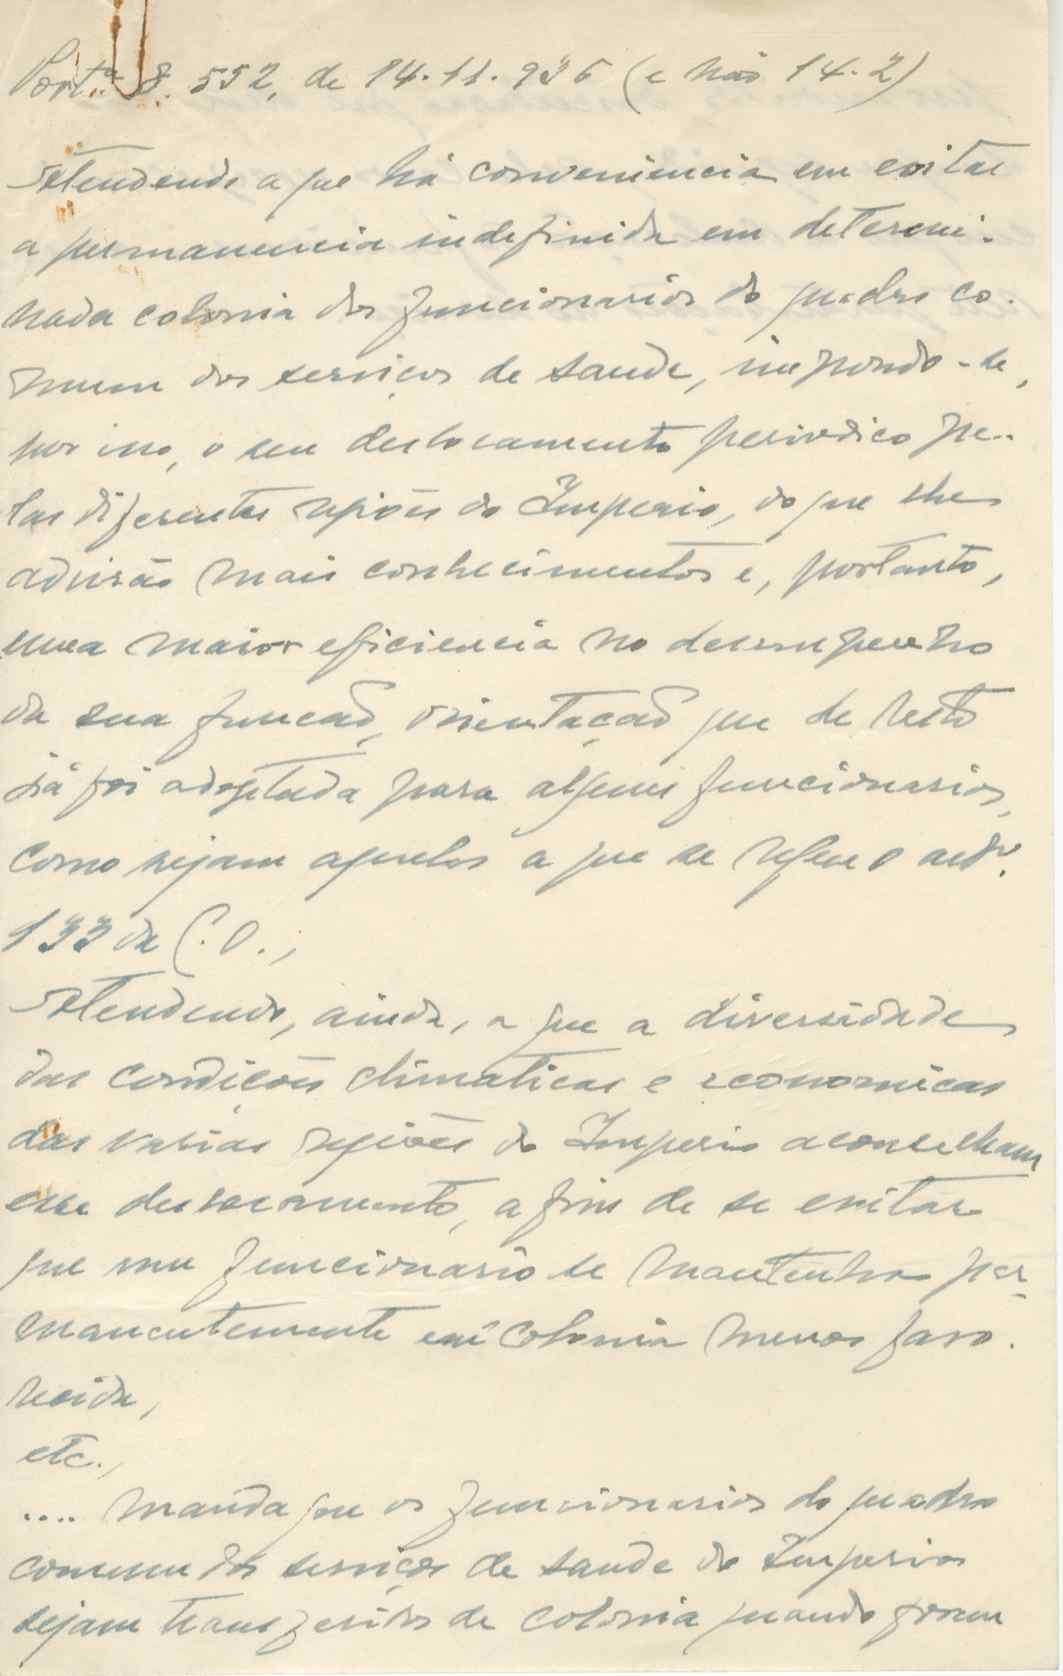 Port.ª 8.552, de 14.11.936 (e não 14.2)
Atendendo a que há conveniencia em evitar
a permanencia indefinida em determi-
nada colonia dos funcionarios do quadro co-
mum dos serviços de saude, impondo-se,
por isso, o seu deslocamento periodico pe-
las diferentes regiões do Imperio, do que lhes
advirão mais conhecimentos e, portanto,
uma maior eficiencia no desempenho
da sua função, orientação que de resto
já foi adoptada para alguns funcionarios,
como sejam aqueles a que se refere o artº.
133 da C.O.;
Atendendo, ainda, a que a diversidade
das condições climaticas e economicas
das varias regiões do Imperio aconselham
esse deslocamento, a fim de se evitar
que um funcionario se mantenha per-
manentemente em colonia menos favo-
recida,
etc.,
.... manda que os funcionarios do quadro
comum dos serviços de saude do Imperio
sejam transferidos de colonia quando forem